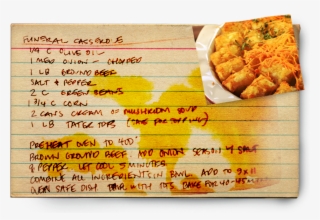 FUNERAL CASSEROLE
1/4 C OLIVE OIL
1 MED ONION - CHOPPED
1 LB GROUND BEEF
SALT & PEPPER
2 C GREEN BEANS
1 3/4 C CORN
2 CANS CREAM OF MUSHROOM SOUP
1 LB TATER TOTS (SAVE FOR TOPPING)
PREHEAT OVEN TO 400°
BROWN GROUND BEEF. ADD ONION SEASON W SALT
& PEPPER. LET COOL 5 MINUTES
COMBINE ALL INGREDIENTS IN BOWL. ADD TO 9X11
OVEN SAFE DISH TOP WITH TOTS BAKE FOR 40-45